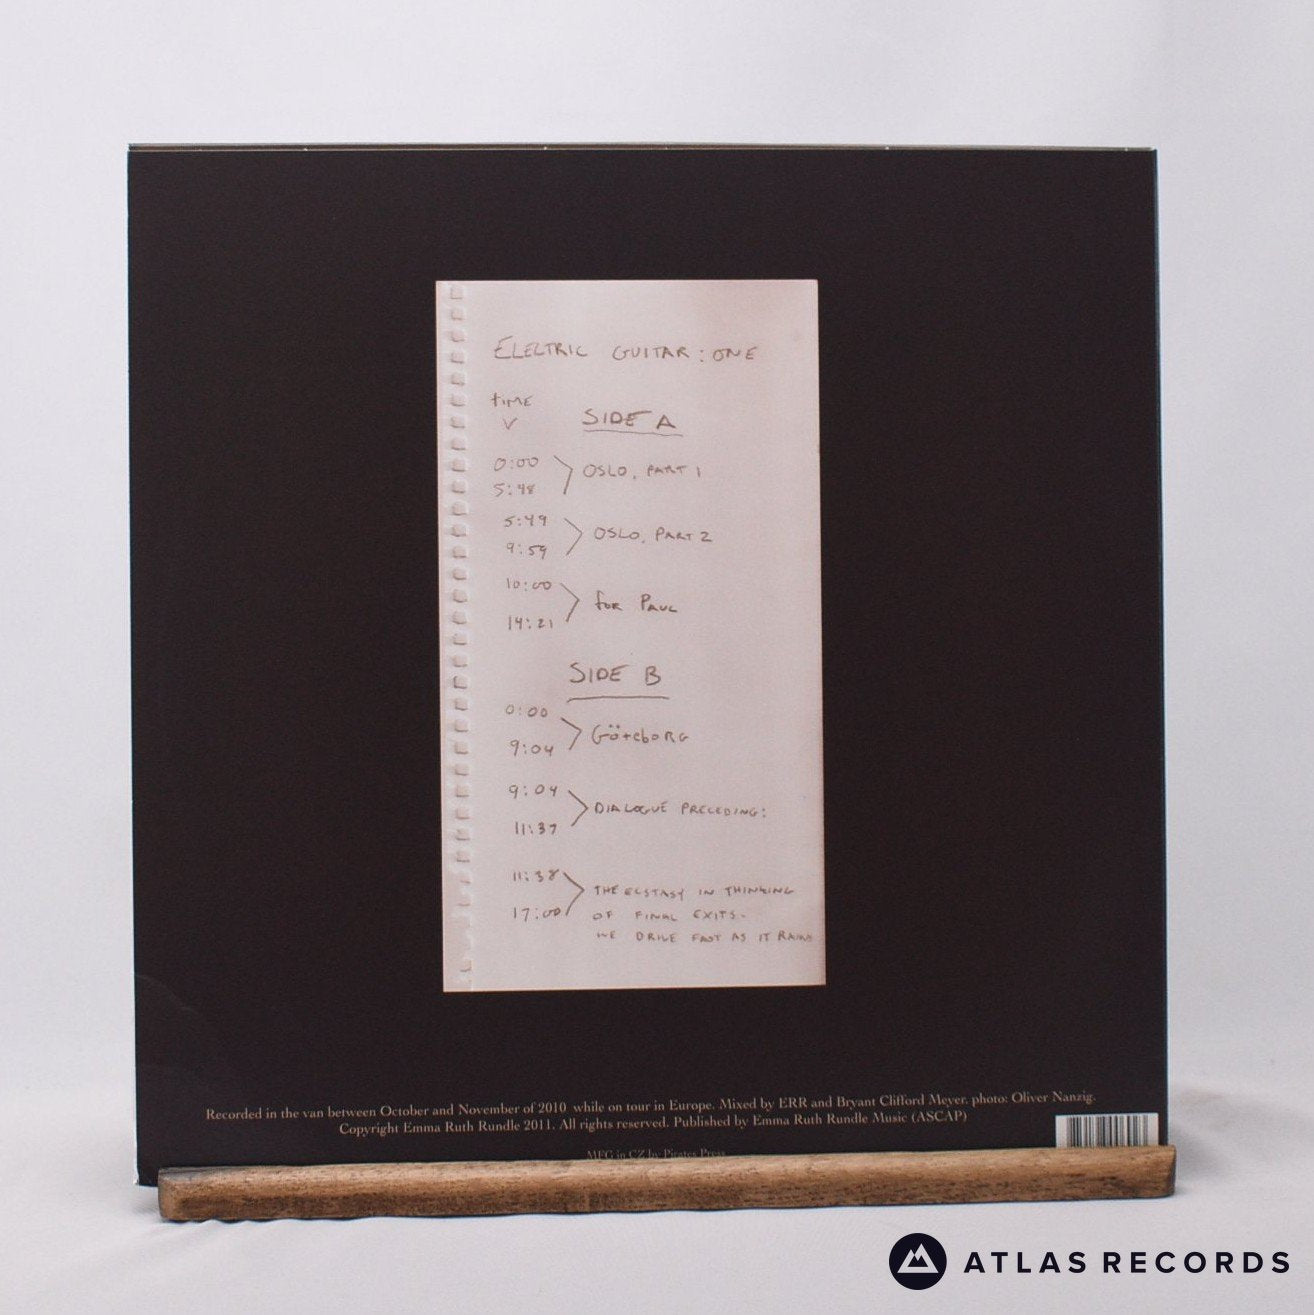 ELECTRIC GUITAR: ONE
TIME
V
SIDE A
0:00
5:48
OSLO, PART 1
5:49
9:59
OSLO, PART 2
10:00
14:21
FOR PAUL
SIDE B
0:00
9:04
GöteboRG
9:04
11:37
DIALOGUE PRECEDING:
11:38
17:00
THE ECSTASY IN THINKING
OF FINAL EXITS-
WE DRIVE FAST AS IT RAINS
Recorded in the van between October and November of 2010 while on tour in Europe. Mixed by ERR and Bryant Clifford Meyer. photo: Oliver Nanzig.
Copyright Emma Ruth Rundle 2011. All rights reserved. Published by Emma Ruth Rundle Music (ASCAP)
MFG in CZ by Pirates Press
ATLAS RECORDS